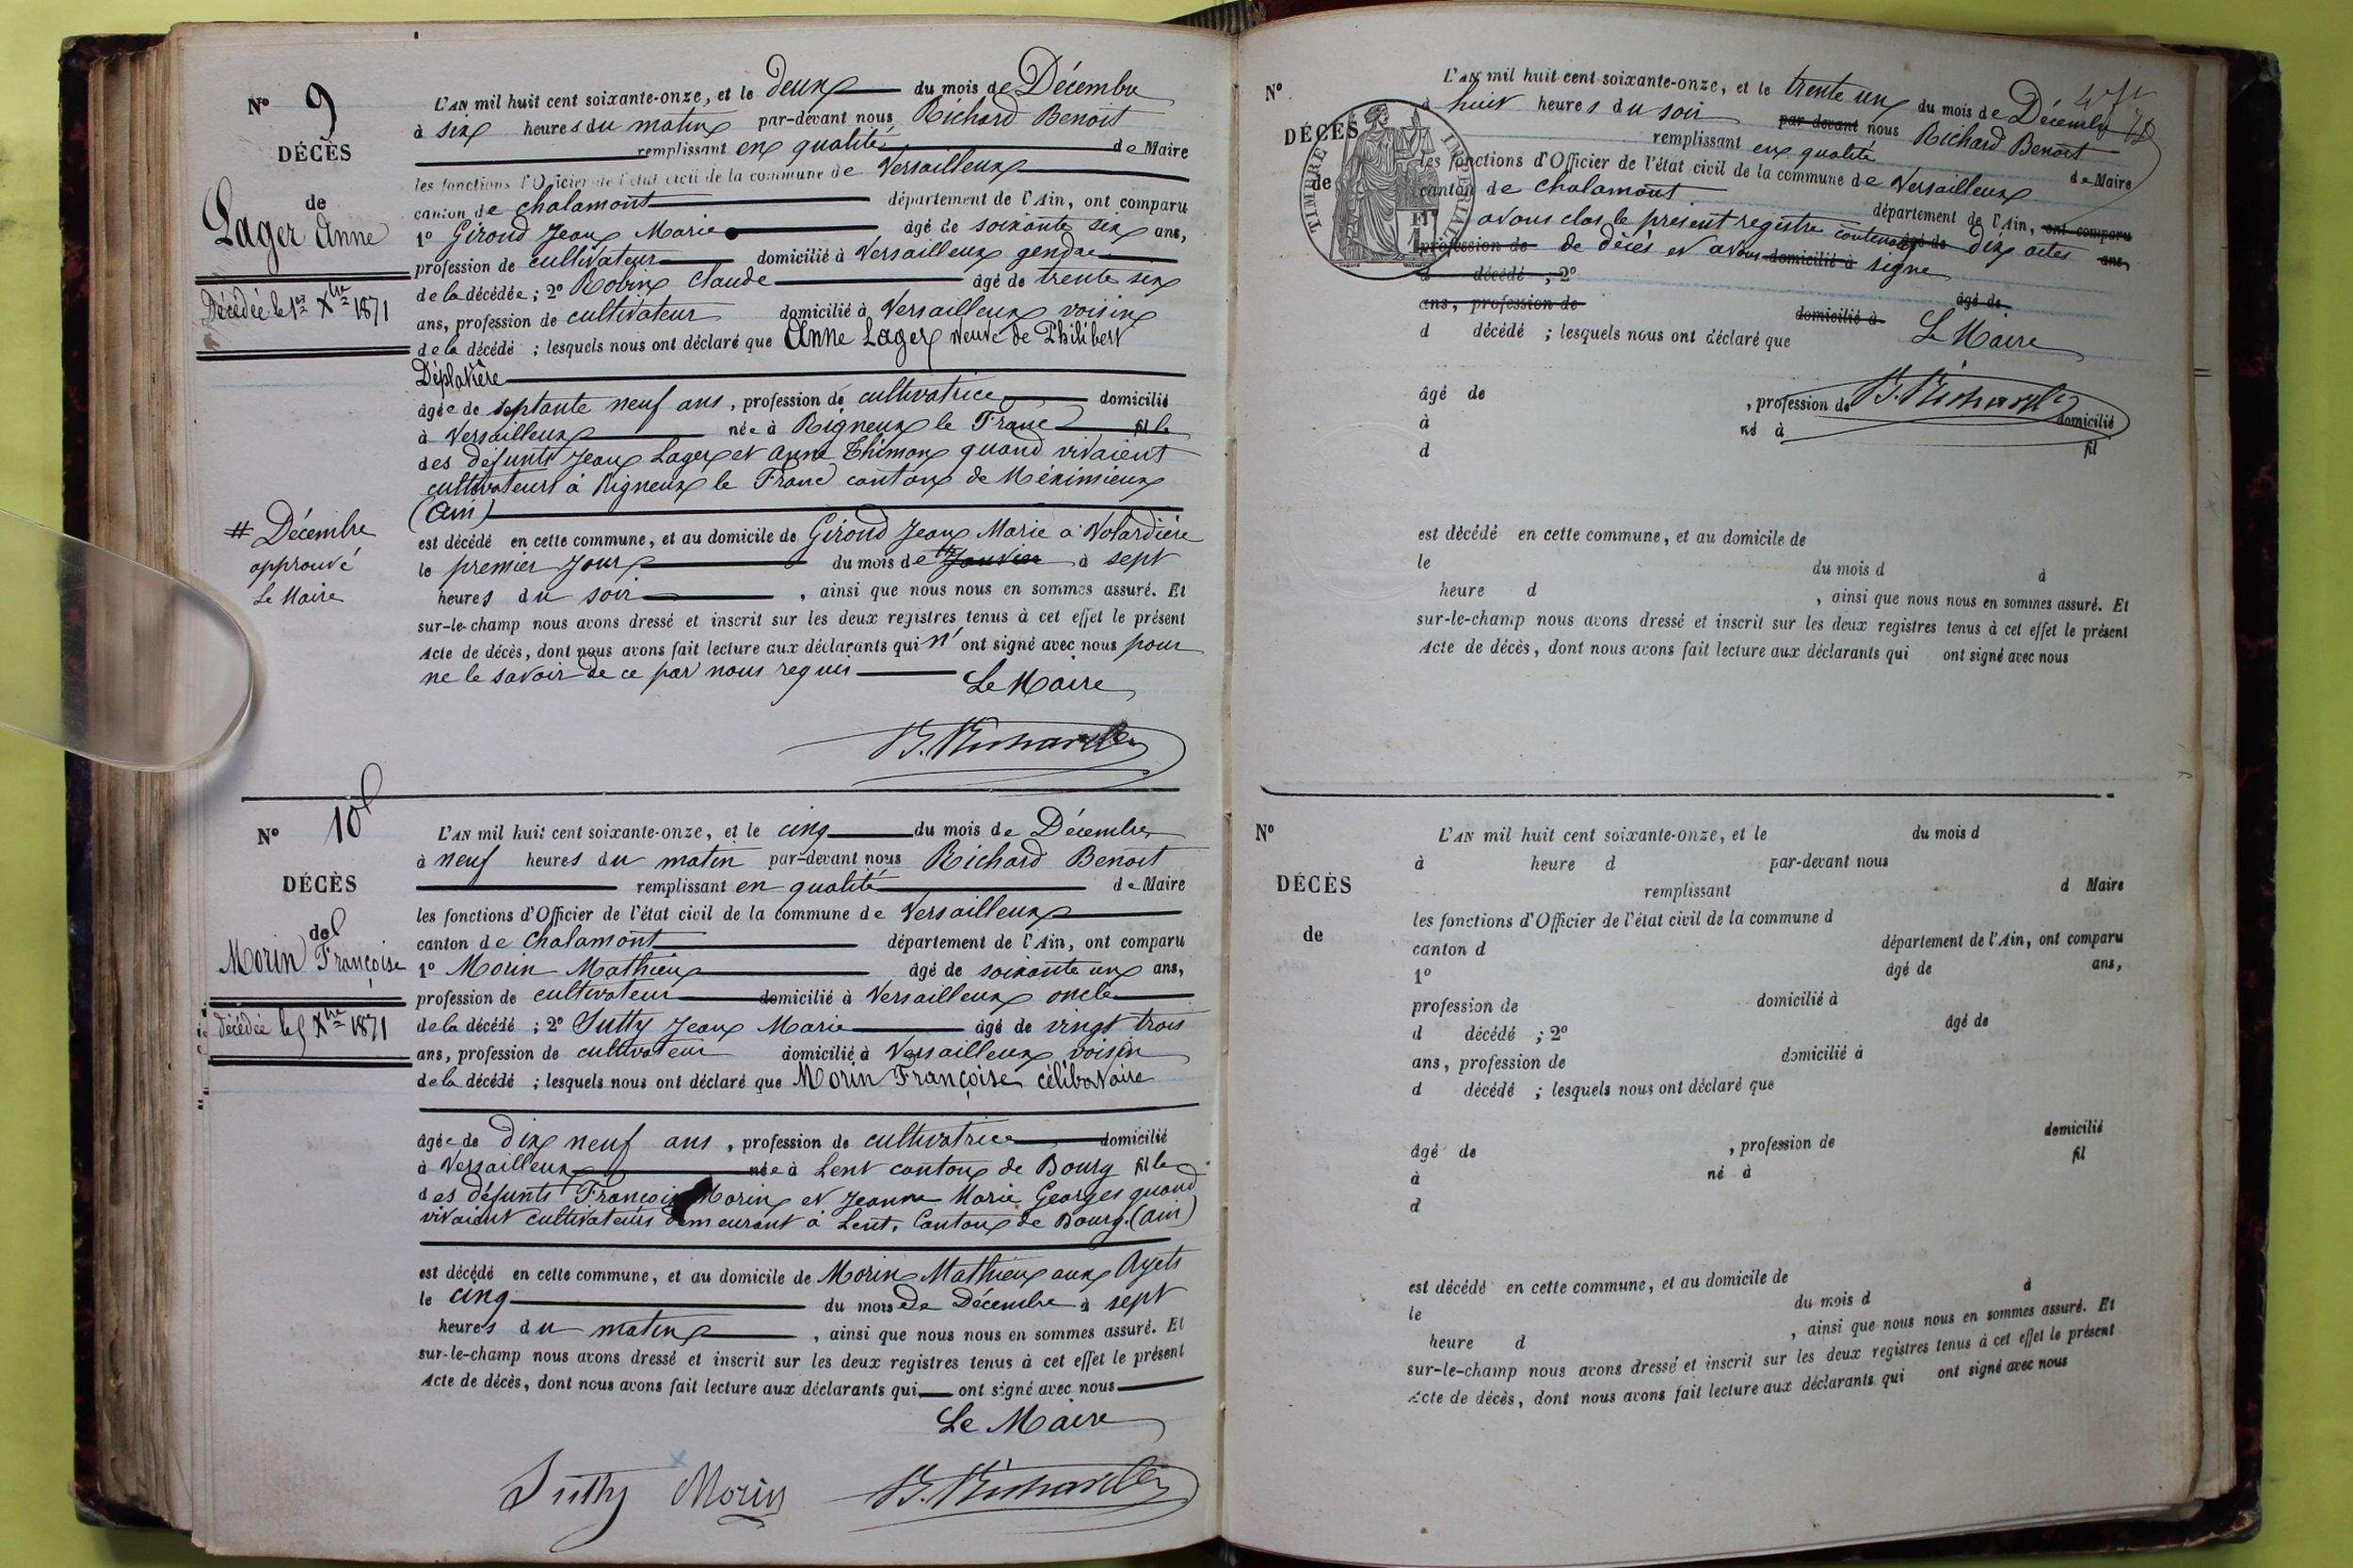 N° 9
DÉCÈS
de
Lager Anne
Décédée le 1er Xbre 1871
# Décembre
approuvé
Le Maire
L'AN mil huit cent soixante-onze, et le deux du mois de Décembre
à six heures du matin par-devant nous Richard Benoit
remplissant en qualité de Maire
les fonctions d'Officier de l'état civil de la commune de Versailleux
canton de Chalamont département de l'Ain, ont comparu
1° Giroud Jean Marie âgé de soixante six ans,
profession de cultivateur domicilié à Versailleux gendre
de la décédée ; 2° Robin Claude âgé de trente six
ans, profession de cultivateur domicilié à Versailleux voisin
de la décédé ; lesquels nous ont déclaré que Anne Lager veuve de Philibert
Déplatière
âgée de septante neuf ans, profession de cultivatrice domicilié
à Versailleux née à Rigneux le Franc fille
des défunts Jean Lager et Anne Thimon quand vivaient
cultivateurs à Rigneux le Franc canton de Méximieux
(Ain)
est décédé en cette commune, et au domicile de Giroud Jean Marie à Volardière
le premier jour du mois de # Janvier à sept
heures du soir, ainsi que nous nous en sommes assuré. Et
sur-le-champ nous avons dressé et inscrit sur les deux registres tenus à cet effet le présent
Acte de décès, dont nous avons fait lecture aux déclarants qui n'ont signé avec nous pour
ne le savoir de ce par nous requis
Le Maire
B. Richard
N° 10
DÉCÈS
de
Morin Françoise
décédée le 5 Xbre 1871
L'AN mil huit cent soixante-onze, et le cinq du mois de Décembre
à neuf heures du matin par-devant nous Richard Benoit
remplissant en qualité de Maire
les fonctions d'Officier de l'état civil de la commune de Versailleux
canton de Chalamont département de l'Ain, ont comparu
1° Morin Mathieu âgé de soixante un ans,
profession de cultivateur domicilié à Versailleux oncle
de la décédé ; 2° Sutty Jean Marie âgé de vingt trois
ans, profession de cultivateur domicilié à Versailleux voisin
de la décédé ; lesquels nous ont déclaré que Morin Françoise célibataire
âgée de Dix neuf ans, profession de cultivatrice domicilié
à Versailleux née à Lent canton de Bourg fille
des défunts François Morin et Jeanne Marie Georges quand
vivaient cultivateurs demeurant à Lent, Canton de Bourg (Ain)
est décédé en cette commune, et au domicile de Morin Mathieu aux Ayets
le cinq du mois de Décembre à sept
heures du matin, ainsi que nous nous en sommes assuré. Et
sur-le-champ nous avons dressé et inscrit sur les deux registres tenus à cet effet le présent
Acte de décès, dont nous avons fait lecture aux déclarants qui ont signé avec nous
Le Maire
Sutty Morin B. Richard
N°
DÉCÈS
de
TIMBRE IMPERIAL
1 F
L'AN mil huit cent soixante-onze, et le trente un du mois de Décembre
à huit heures du soir par-devant nous Richard Benoit
remplissant en qualité de Maire
les fonctions d'Officier de l'état civil de la commune de Versailleux
canton de Chalamont département de l'Ain, ont comparu
avons clos le présent registre contenant âgé de dix actes ans,
profession de de décès et avons domicilié à signé
d décédé ; 2° âgé de
ans, profession de domicilié à
d décédé ; lesquels nous ont déclaré que Le Maire
âgé de , profession de B. Richard domicilié
à né à fil
d
est décédé en cette commune, et au domicile de
le du mois d à
heure d , ainsi que nous nous en sommes assuré. Et
sur-le-champ nous avons dressé et inscrit sur les deux registres tenus à cet effet le présent
Acte de décès, dont nous avons fait lecture aux déclarants qui ont signé avec nous
N°
DÉCÈS
de
L'AN mil huit cent soixante-onze, et le du mois d
à heure d par-devant nous
remplissant d Maire
les fonctions d'Officier de l'état civil de la commune d
canton d département de l'Ain, ont comparu
1° âgé de ans,
profession de domicilié à
d décédé ; 2° âgé de
ans, profession de domicilié à
d décédé ; lesquels nous ont déclaré que
âgé de , profession de domicilié
à né à fil
d
est décédé en cette commune, et au domicile de
le du mois d à
heure d , ainsi que nous nous en sommes assuré. Et
sur-le-champ nous avons dressé et inscrit sur les deux registres tenus à cet effet le présent
Acte de décès, dont nous avons fait lecture aux déclarants qui ont signé avec nous